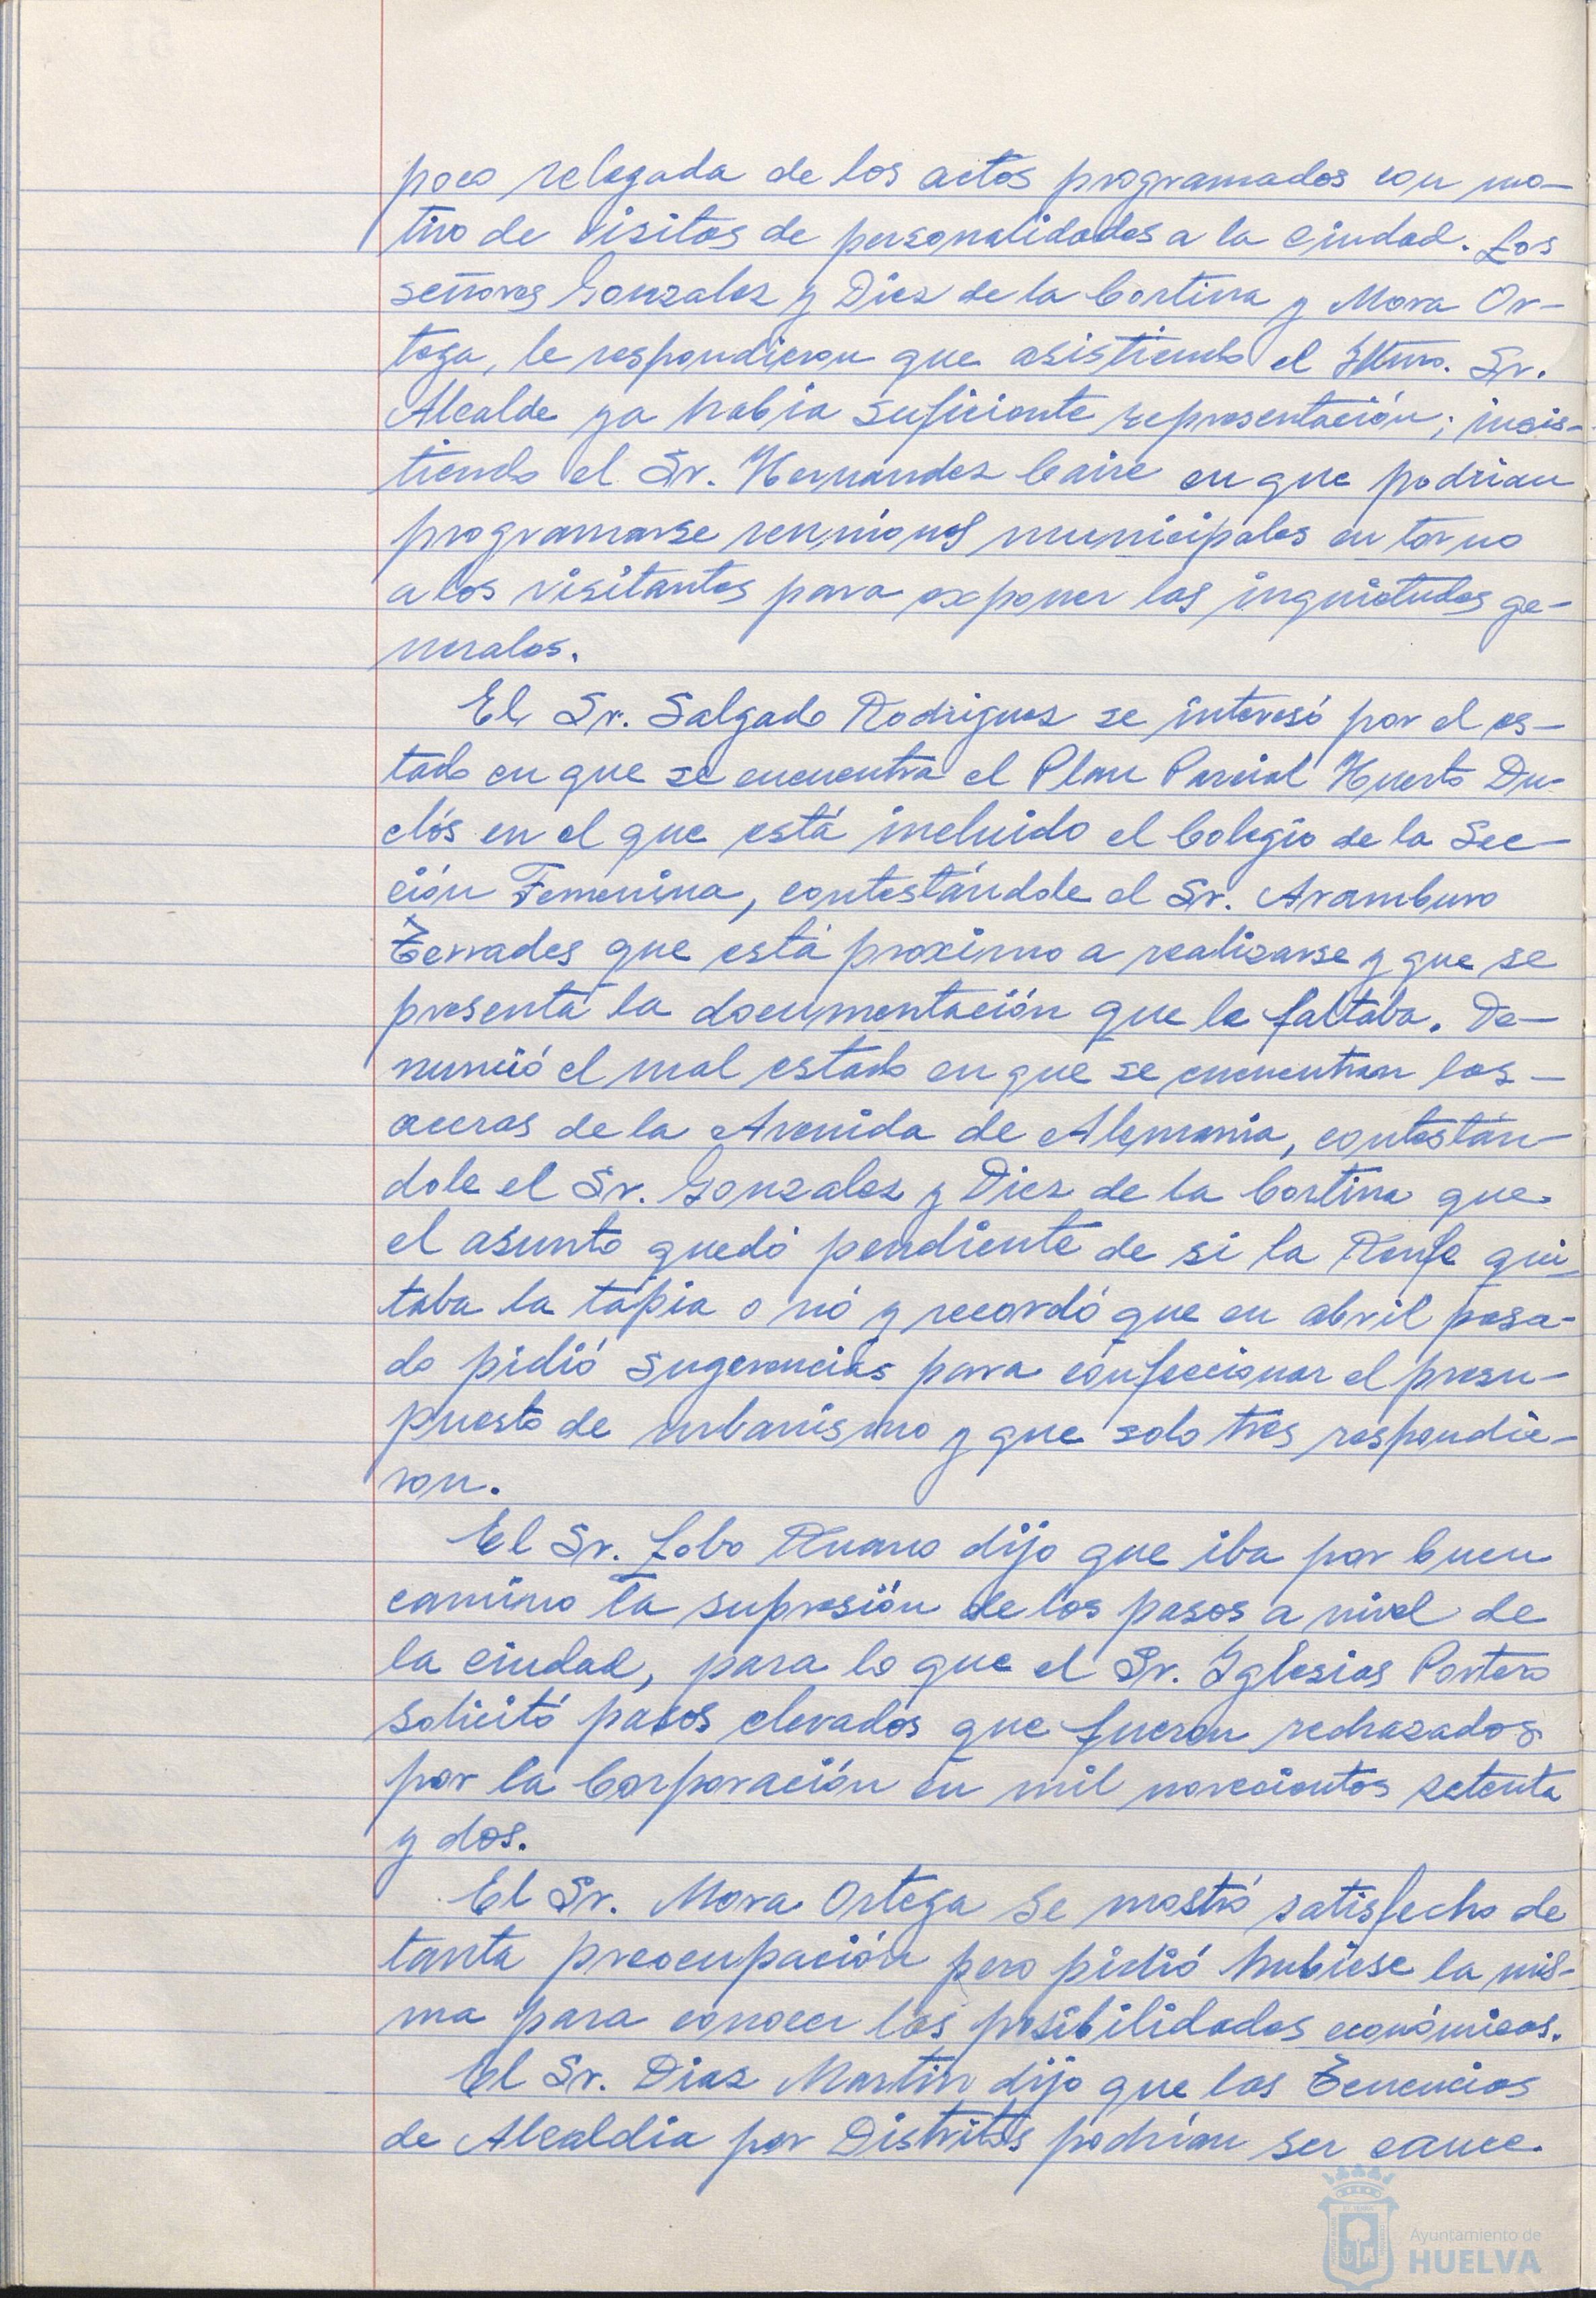 poco relegada de los actos programados con mo-
tivo de visitas de personalidades a la ciudad. Los
señores Gonzalez y Diez de la Cortina y Mora Or-
tega, le respondieron que asistiendo el Iltmo. Sr.
Alcalde ya habia suficiente representación; insis-
tiendo el Sr. Hernandez Caire en que podrian
programarse reuniones municipales en torno
a los visitantes para exponer las inquietudes ge-
nerales.
El Sr. Salgado Rodriguez se interesó por el es-
tado en que se encuentra el Plan Parcial Huerto Du-
clós en el que está incluido el Colegio de la Sec-
ción Femenina, contestándole el Sr. Aramburo
Terrades que está proximo a realizarse y que se
presentá la documentación que le faltaba. De-
nunció el mal estado en que se encuentran las -
aceras de la Avenida de Alemania, contestán-
dole el Sr. Gonzalez y Diez de la Cortina que
el asunto quedó pendiente de si la Renfe qui-
taba la tápia o nó y recordó que en abril pasa-
do pidió sugerencias para confeccionar el presu-
puesto de urbanismo y que solo tres respondie-
ron.
El Sr. Lobo Ruano dijo que iba por buen
camino la supresión de los pasos a nivel de
la ciudad, para lo que el Sr. Iglesias Portero
solicitó pasos elevados que fueron rechazados
por la Corporación en mil novecientos setenta
y dos.
El Sr. Mora Ortega se mostró satisfecho de
tanta preocupación pero pidió hubiese la mis-
ma para conocer las posibilidades económicas.
El Sr. Diaz Martin dijo que las Tenencias
de Alcaldia por Distritos podrian ser cauce
Ayuntamiento de
HUELVA